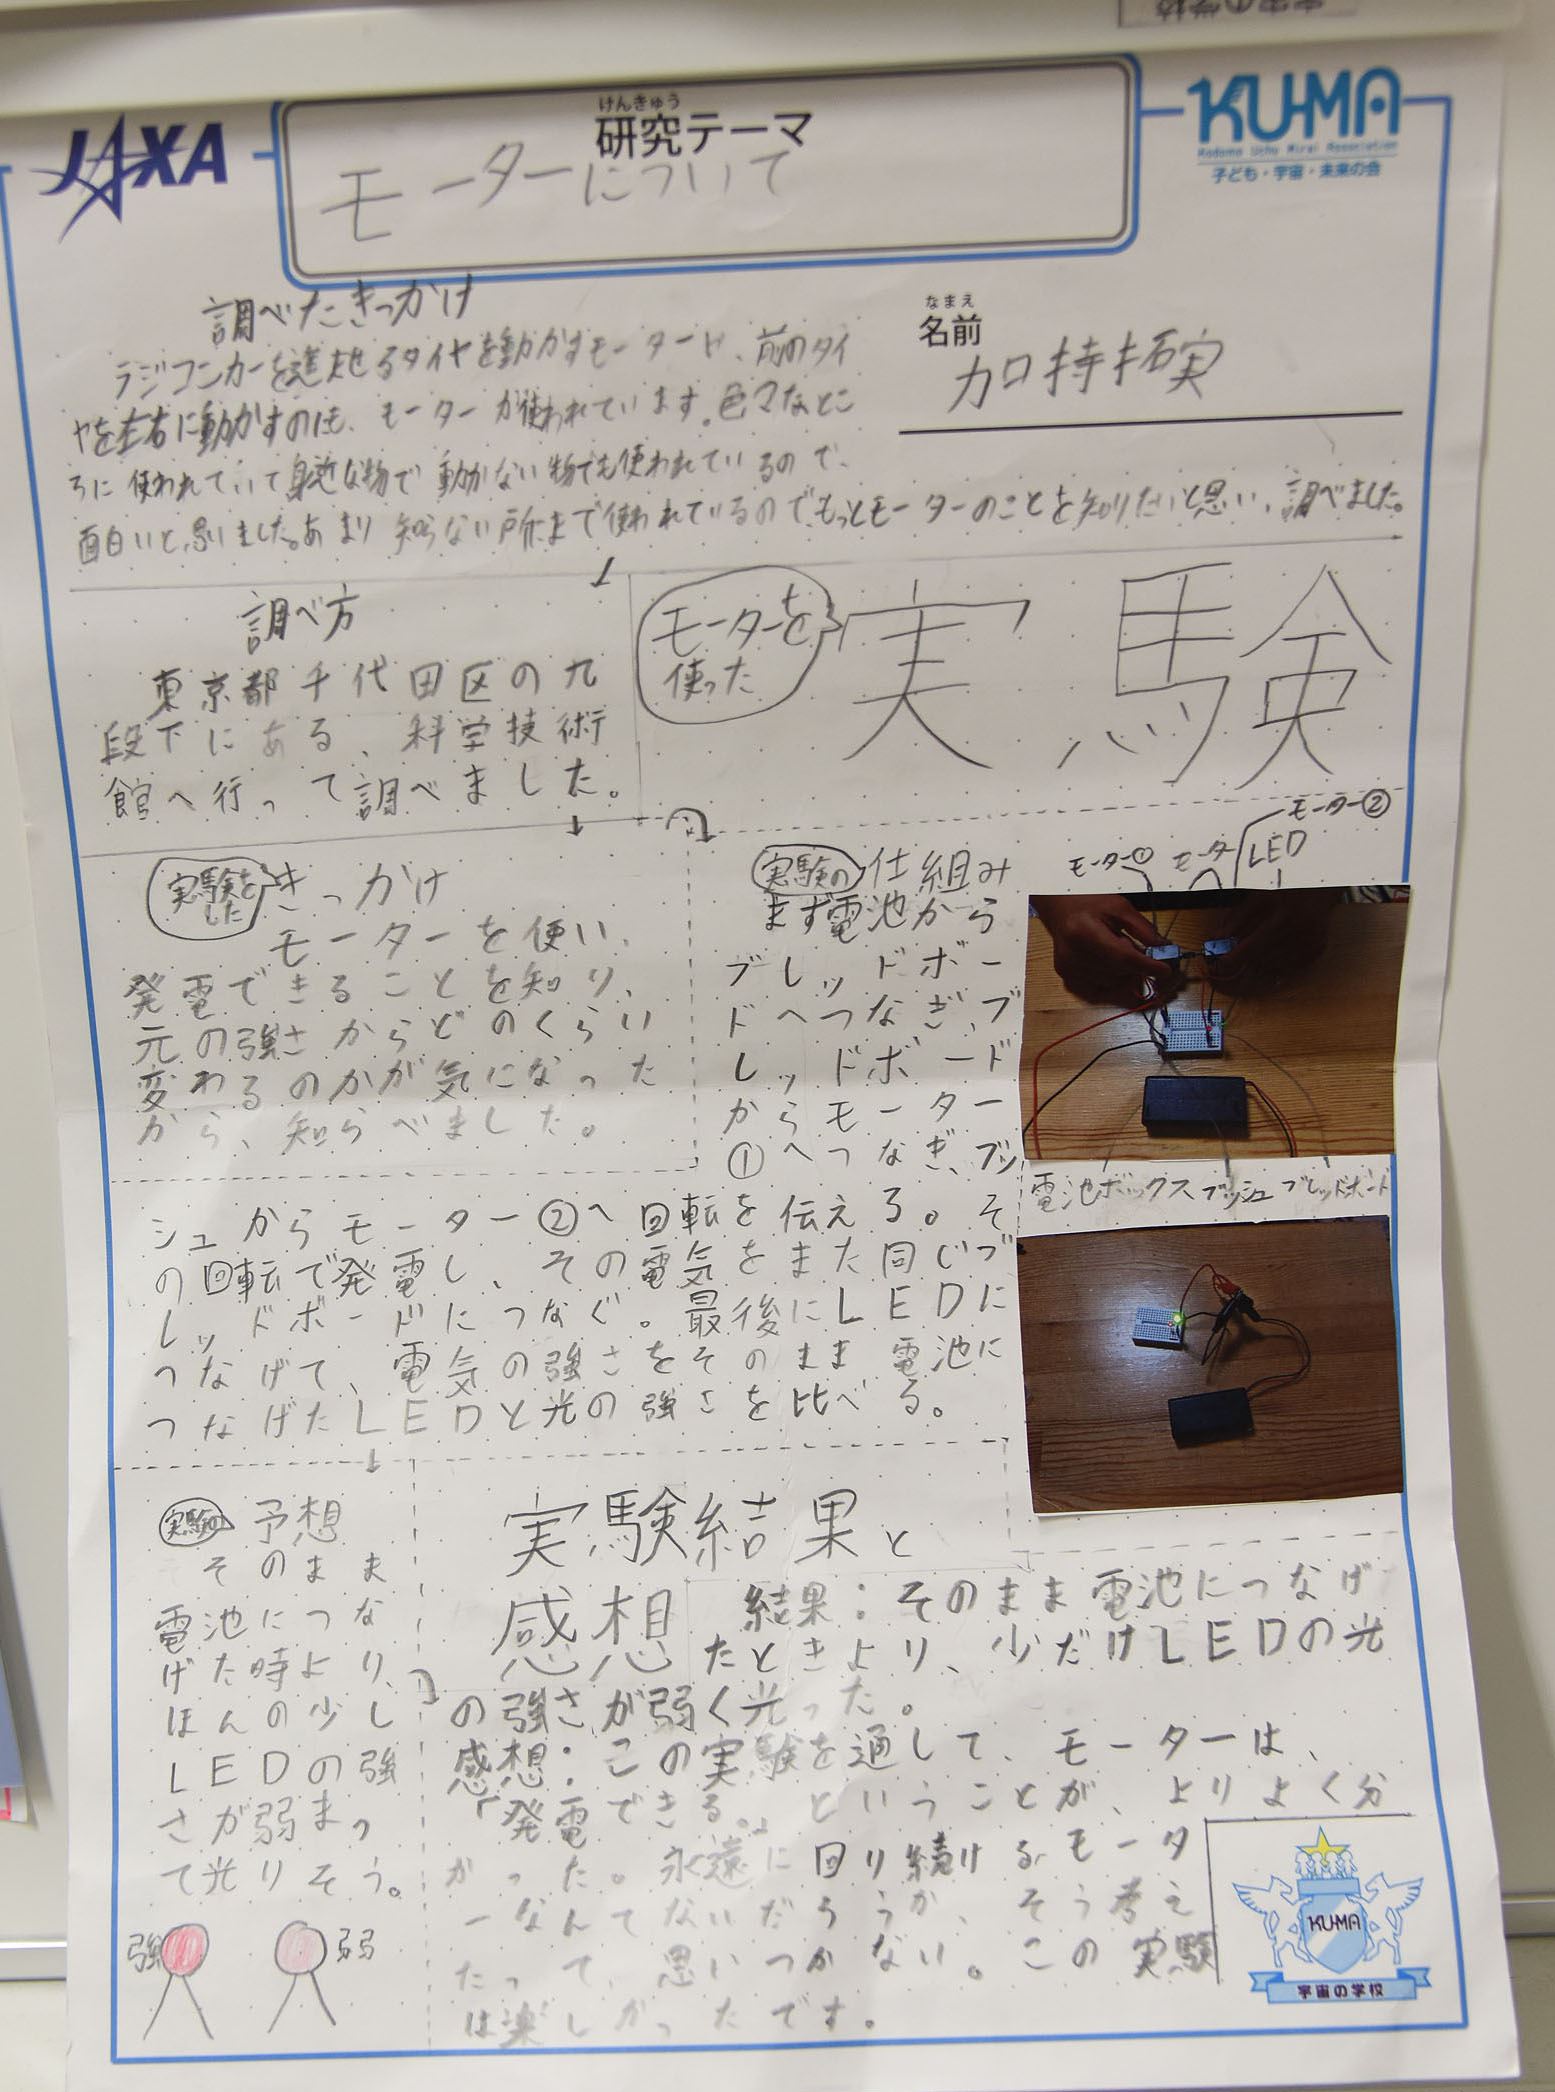 JAXA
けんきゅう
研究テーマ
モーターについて
KU-MA
Kodomo Uchu Mirai Association
子ども・宇宙・未来の会
調べたきっかけ
ラジコンカーを走らせるタイヤを動かすモーターや、前のタイ
ヤを左右に動かすのにも、モーターが使われています。色々なとこ
ろに使われていて身近な物で動かない物でも使われているので、
面白いと思いました。あまり知らない所まで使われているのでもっとモーターのことを知りたいと思い、調べました。
なまえ
名前
加持拓実
調べ方
東京都千代田区の九
段下にある、科学技術
館へ行って調べました。
モーターを
使った
実験
実験を
した
きっかけ
モーターを使い、
発電できることを知り、
元の強さからどのくらい
変わるのかが気になった
から、知らべました。
実験の仕組み
まず電池から
ブレッドボー
ドへつなぎ、ブ
レッドボード
からモーター
①へつなぎ、ブッ
シュからモーター②へ回転を伝える。そ
の回転で発電し、その電気をまた同じブ
レッドボードにつなぐ。最後にLEDに
つなげて、電気の強さをそのまま電池に
つなげたLEDと光の強さを比べる。
モーター②
モーター① モータ LED
電池ボックス ブッシュ ブレッドボード
実験の 予想
そのまま
電池につな
げた時より、
ほんの少し
LEDの強
さが弱まっ
て光りそう。
強 弱
実験結果と
感想
結果:そのまま電池につなげ
たときより、少だけLEDの光
の強さが弱く光った。
感想:この実験を通して、モーターは、
「発電できる。」ということが、よりよく分
かった。永遠に回り続けるモータ
ーなんてないだろうか、そう考え
たって、思いつかない。この実験
は楽しかったです。
KU-MA
宇宙の学校